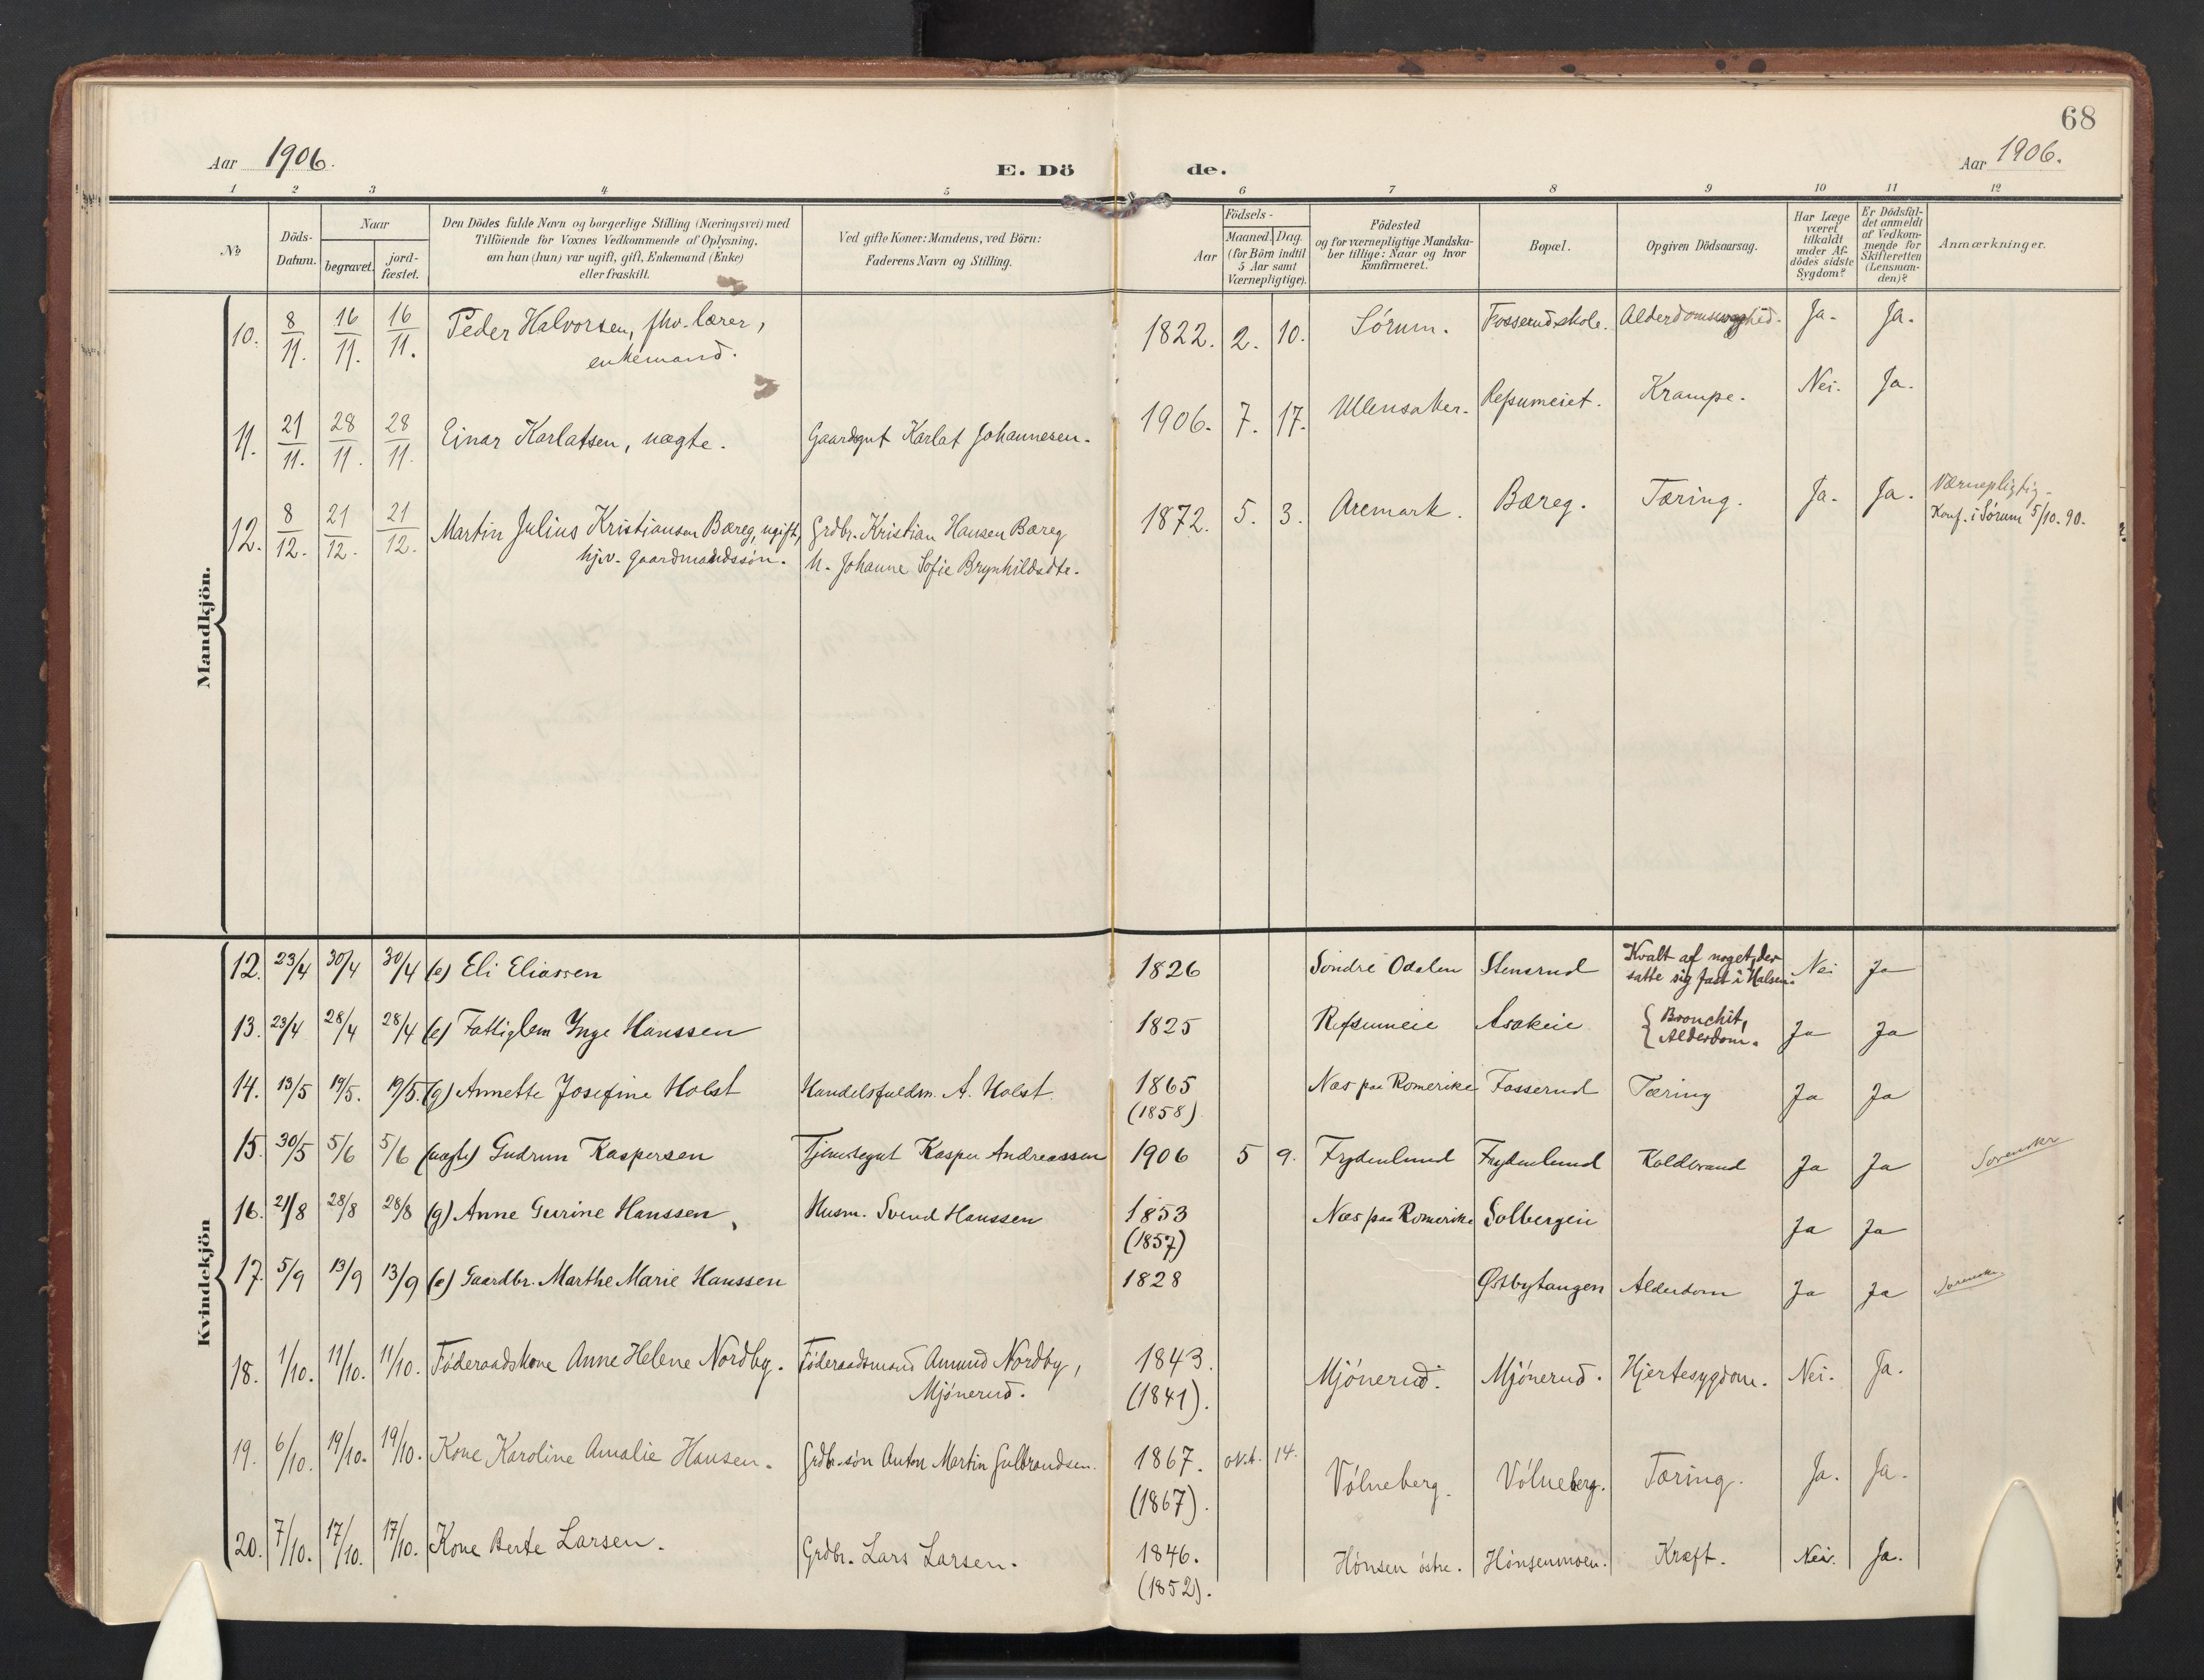 68
Aar 1906.
E. Dö de.
Aar 1906.
1 2 3 4 5 6 7 8 9 10 11 12
No
Döds-Datum.
Naar
begravet.
jord-fæstet.
Den Dödes fulde Navn og borgerlige Stilling (Næringsvei) med
Tilföiende for Voxnes Vedkommende af Oplysning,
om han (hun) var ugift, gift, Enkemand (Enke)
eller fraskilt.
Ved gifte Koner: Mandens, ved Börn:
Faderens Navn og Stilling.
Födsels-
Aar
Maaned. Dag.
(for Börn indtil
5 Aar samt
Værnepligtige).
Födested
og for værnepligtige Mandska-
ber tillige: Naar og hvor
konfirmeret.
Bopæl.
Opgiven Dödsaarsag.
Har Læge
været
tilkaldt
under Af-
dödes sidste
Sygdom?
Er Dödsfal-
det anmeldt
af Vedkom-
mende for
Skifteretten
(Lensman-
den)?
Anmærkninger.
Mandkjön.
10. 8/11. 16/11. 16/11. Peder Halvorsen, fhv. lærer, 1822. 2. 10. Sörum. Fosserudskole. Alderdomssvaghed. Ja. Ja.
enkemand.
11. 21/11. 28/11. 28/11. Einar Karlatsen, uægte. Gaardsgut Karlat Johannesen. 1906. 7. 17. Ullensaker. Refsumeiet. Krampe. Nei. Ja.
12. 8/12. 21/12. 21/12. Martin Julius Kristiansen Bæreg, ugift, Grdbr. Kristian Hansen Bæreg 1872. 5. 3. Aremark. Bæreg. Tæring. Ja. Ja. Værnepligtig.
hjv. gaardmandssön. H. Johanne Sofie Brynhildsdtr. Konf. i Sörum 5/10. 90.
Kvindekjön
12. 23/4 30/4 30/4 (e) Eli Eliassen 1826 Söndre Odalen Stensrud Kvalt af noget, der
satte sig fast i Halsen. Nei Ja
13. 23/4 28/4 28/4 (e) Fattiglem Inge Hanssen 1825 Refsumeie Asakeie Bronchit,
Alderdom. Ja Ja
14. 13/5 19/5. 19/5. (g) Annette Josefine Holst Handelsfuldm. A. Holst. 1865 Næs paa Romerike Fosserud Tæring Ja Ja
(1858)
15. 30/5 5/6 5/6 (uægte) Gudrun Kaspersen Tjenestegut Kasper Andreassen 1906 5 9. Frydenlund Frydenlund Koldbrand Ja Ja
16. 21/8 28/8 28/8 (g) Anne Gurine Hanssen Husm. Svend Hanssen 1853 Næs paa Romerike Solbergeie Ja Ja
(1857)
17. 5/9 13/9 13/9 (e) Gaardbr. Marthe Marie Hanssen 1828 Østbytangen Alderdom Ja Ja
18. 1/10. 11/10. 11/10. Föderaadskone Anne Helene Nordby. Föderaadsmand Amund Nordby, 1843. Mjönerud. Mjönerud. Hjertesygdom. Nei. Ja.
Mjönerud. (1841).
19. 6/10. 19/10. 19/10. Kone Karoline Amalie Hansen. Grdbr.sön Anton Martin Gulbrandsen. 1867. okt. 14. Völneberg. Völneberg. Tæring. Ja. Ja.
(1867).
20. 7/10. 17/10. 17/10. Kone Berte Larsen. Grdbr. Lars Larsen. 1846. Hönsen östre. Hönsenmoen. Kræft. Nei. Ja.
(1852).